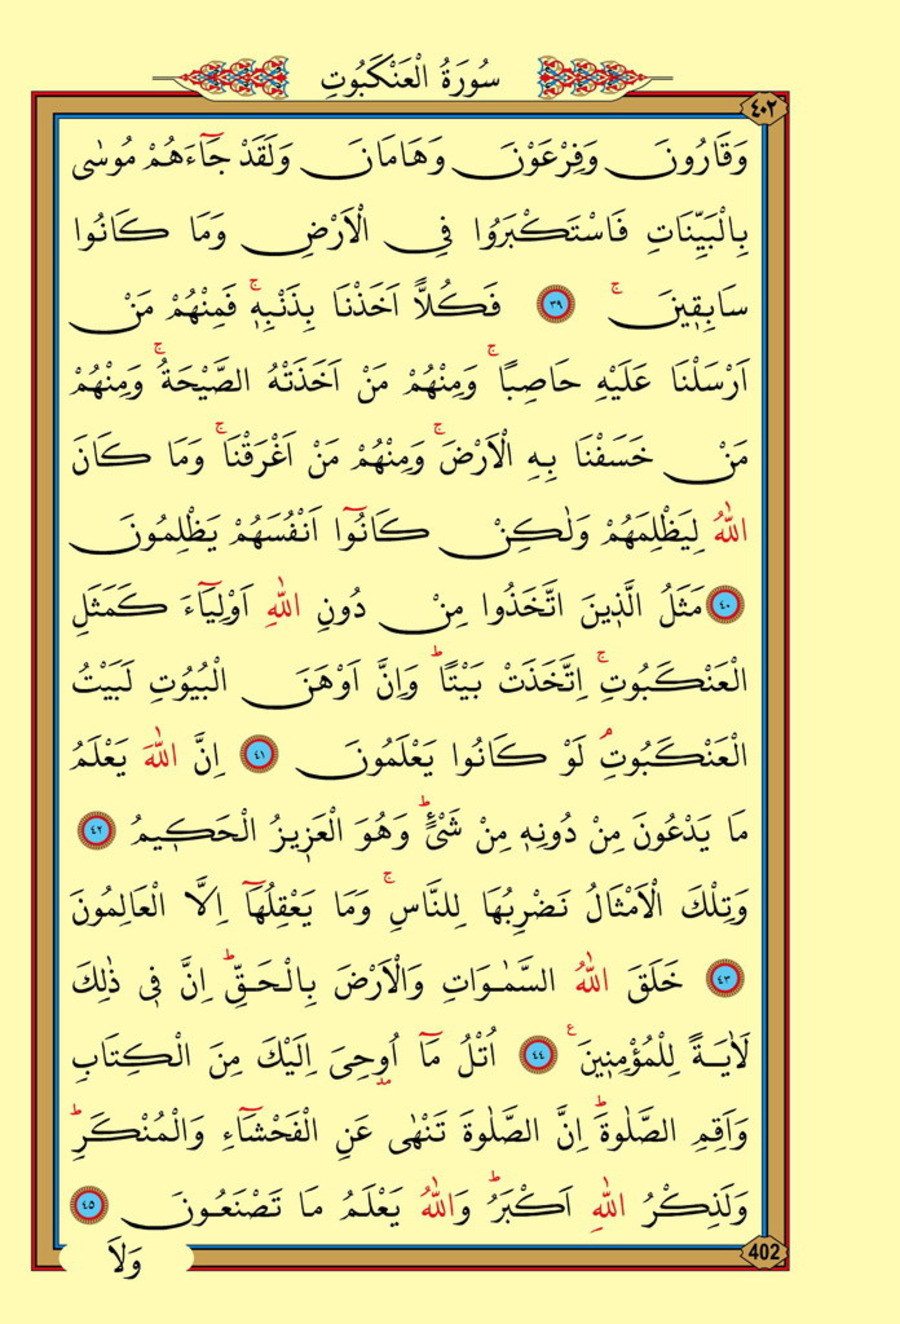 سُورَةُ الْعَنْكَبُوتِ
٤٠٢
وَقَارُونَ وَفِرْعَوْنَ وَهَامَانَ وَلَقَدْ جَٓاءَهُمْ مُوسٰى
بِالْبَيِّنَاتِ فَاسْتَكْبَرُوا فِي الْاَرْضِ وَمَا كَانُوا
سَابِقٖينَۚ ٣٩ فَكُلاًّ اَخَذْنَا بِذَنْبِهٖۚ فَمِنْهُمْ مَنْ
اَرْسَلْنَا عَلَيْهِ حَاصِبًاۚ وَمِنْهُمْ مَنْ اَخَذَتْهُ الصَّيْحَةُۚ وَمِنْهُمْ
مَنْ خَسَفْنَا بِهِ الْاَرْضَۚ وَمِنْهُمْ مَنْ اَغْرَقْنَاۚ وَمَا كَانَ
اللّٰهُ لِيَظْلِمَهُمْ وَلٰكِنْ كَانُٓوا اَنْفُسَهُمْ يَظْلِمُونَ
٤٠ مَثَلُ الَّذٖينَ اتَّخَذُوا مِنْ دُونِ اللّٰهِ اَوْلِيَٓاءَ كَمَثَلِ
الْعَنْكَبُوتِۚ اِتَّخَذَتْ بَيْتًاؕ وَاِنَّ اَوْهَنَ الْبُيُوتِ لَبَيْتُ
الْعَنْكَبُوتِۘ لَوْ كَانُوا يَعْلَمُونَ ٤١ اِنَّ اللّٰهَ يَعْلَمُ
مَا يَدْعُونَ مِنْ دُونِهٖ مِنْ شَيْءٍؕ وَهُوَ الْعَزٖيزُ الْحَكٖيمُ ٤٢
وَتِلْكَ الْاَمْثَالُ نَضْرِبُهَا لِلنَّاسِۚ وَمَا يَعْقِلُهَٓا اِلَّا الْعَالِمُونَ
٤٣ خَلَقَ اللّٰهُ السَّمٰوَاتِ وَالْاَرْضَ بِالْحَقِّؕ اِنَّ فٖي ذٰلِكَ
لَاٰيَةً لِلْمُؤْمِنٖينَ ع ٤٤ اُتْلُ مَٓا اُو۫حِيَ اِلَيْكَ مِنَ الْكِتَابِ
وَاَقِمِ الصَّلٰوةَؕ اِنَّ الصَّلٰوةَ تَنْهٰى عَنِ الْفَحْشَٓاءِ وَالْمُنْكَرِؕ
وَلَذِكْرُ اللّٰهِ اَكْبَرُؕ وَاللّٰهُ يَعْلَمُ مَا تَصْنَعُونَ ٤٥
402
وَلَا